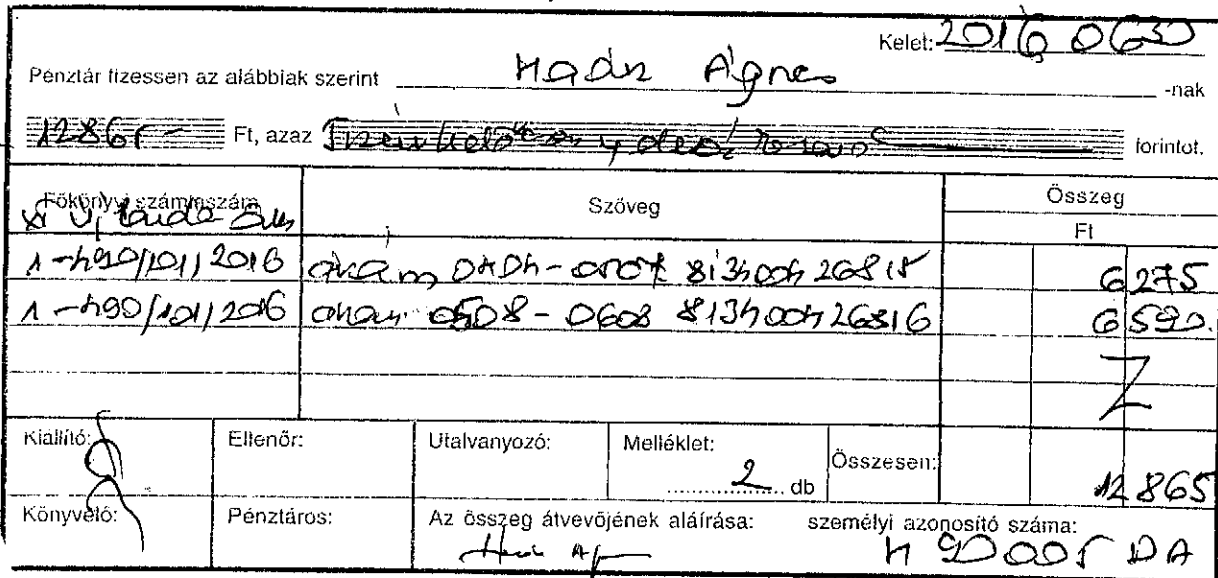 Kelet: 2016 0630
Pénztár fizessen az alábbiak szerint Ágnes -nak
12865- Ft, azaz forintot.
Főkönyvi számlaszám Szöveg Összeg
Ft
1-490/101/2016 áram 0404-0507 813400426815 6275
1-490/101/2016 áram 0508-0608 813400426816 6590.
Kiállító: Ellenőr: Utalványozó: Melléklet: 2 db Összesen: 12865
Könyvelő: Pénztáros: Az összeg átvevőjének aláírása: személyi azonosító száma: